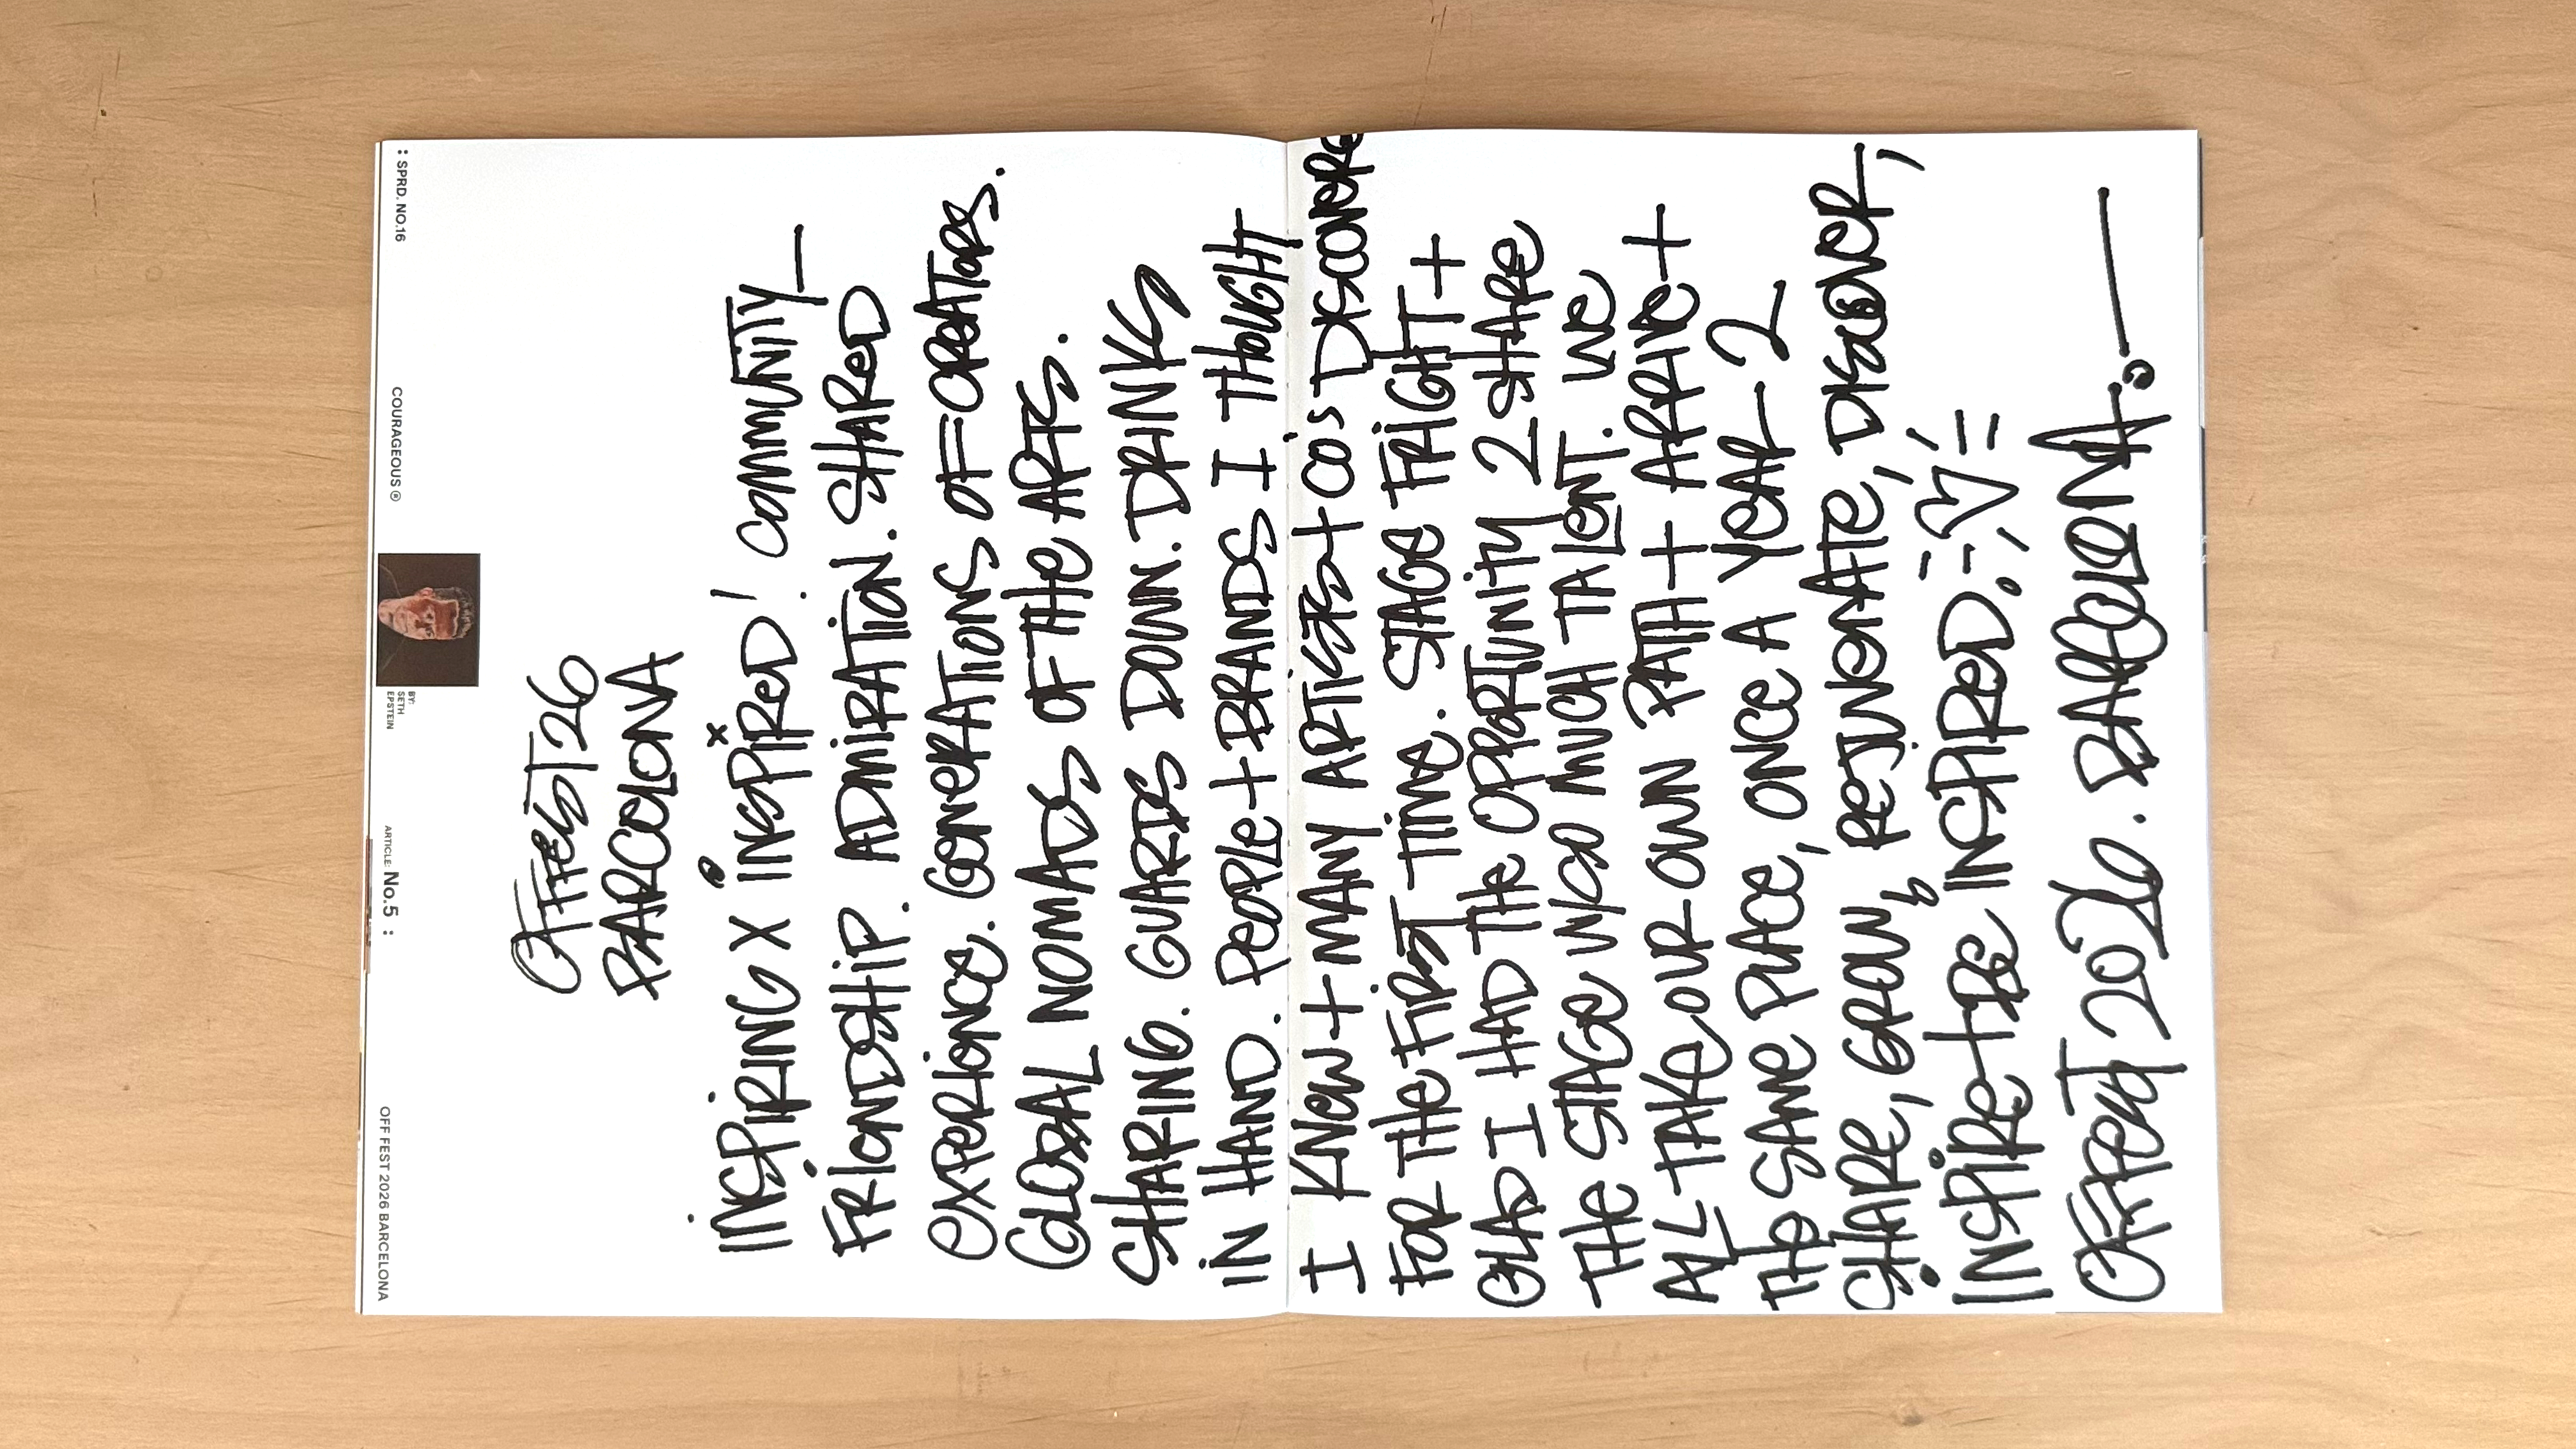 : SPRD. NO.16
COURAGEOUS ®
BY:
SETH
EPSTEIN
ARTICLE: No.5 :
OFF FEST 2026 BARCELONA
OFFFEST26
BARCELONA
INSPIRING X INSPIRED! COMMUNITY—
FRIENDSHIP. ADMIRATION. SHARED
EXPERIENCE. GENERATIONS OF CREATORS.
GLOBAL NOMADS OF THE ARTS.
SHARING. GUARDS DOWN. DRINKS
IN HAND. PEOPLE + BRANDS I THOUGHT
I KNEW + MANY ARTISTS + CO'S DISCOVERE
FOR THE FIRST TIME. STAGE FRIGHT +
GLAD I HAD THE OPPORTUNITY 2 SHARE
THE STAGE W/SO MUCH TALENT. WE
ALL TAKE OUR OWN PATH + ARRIVE +
THE SAME PLACE, ONCE A YEAR — 2
SHARE, GROW, REJUVENATE, DISCOVER,
INSPIRE + BE INSPIRED.
OFFFEST 2026. BARCELONA.—